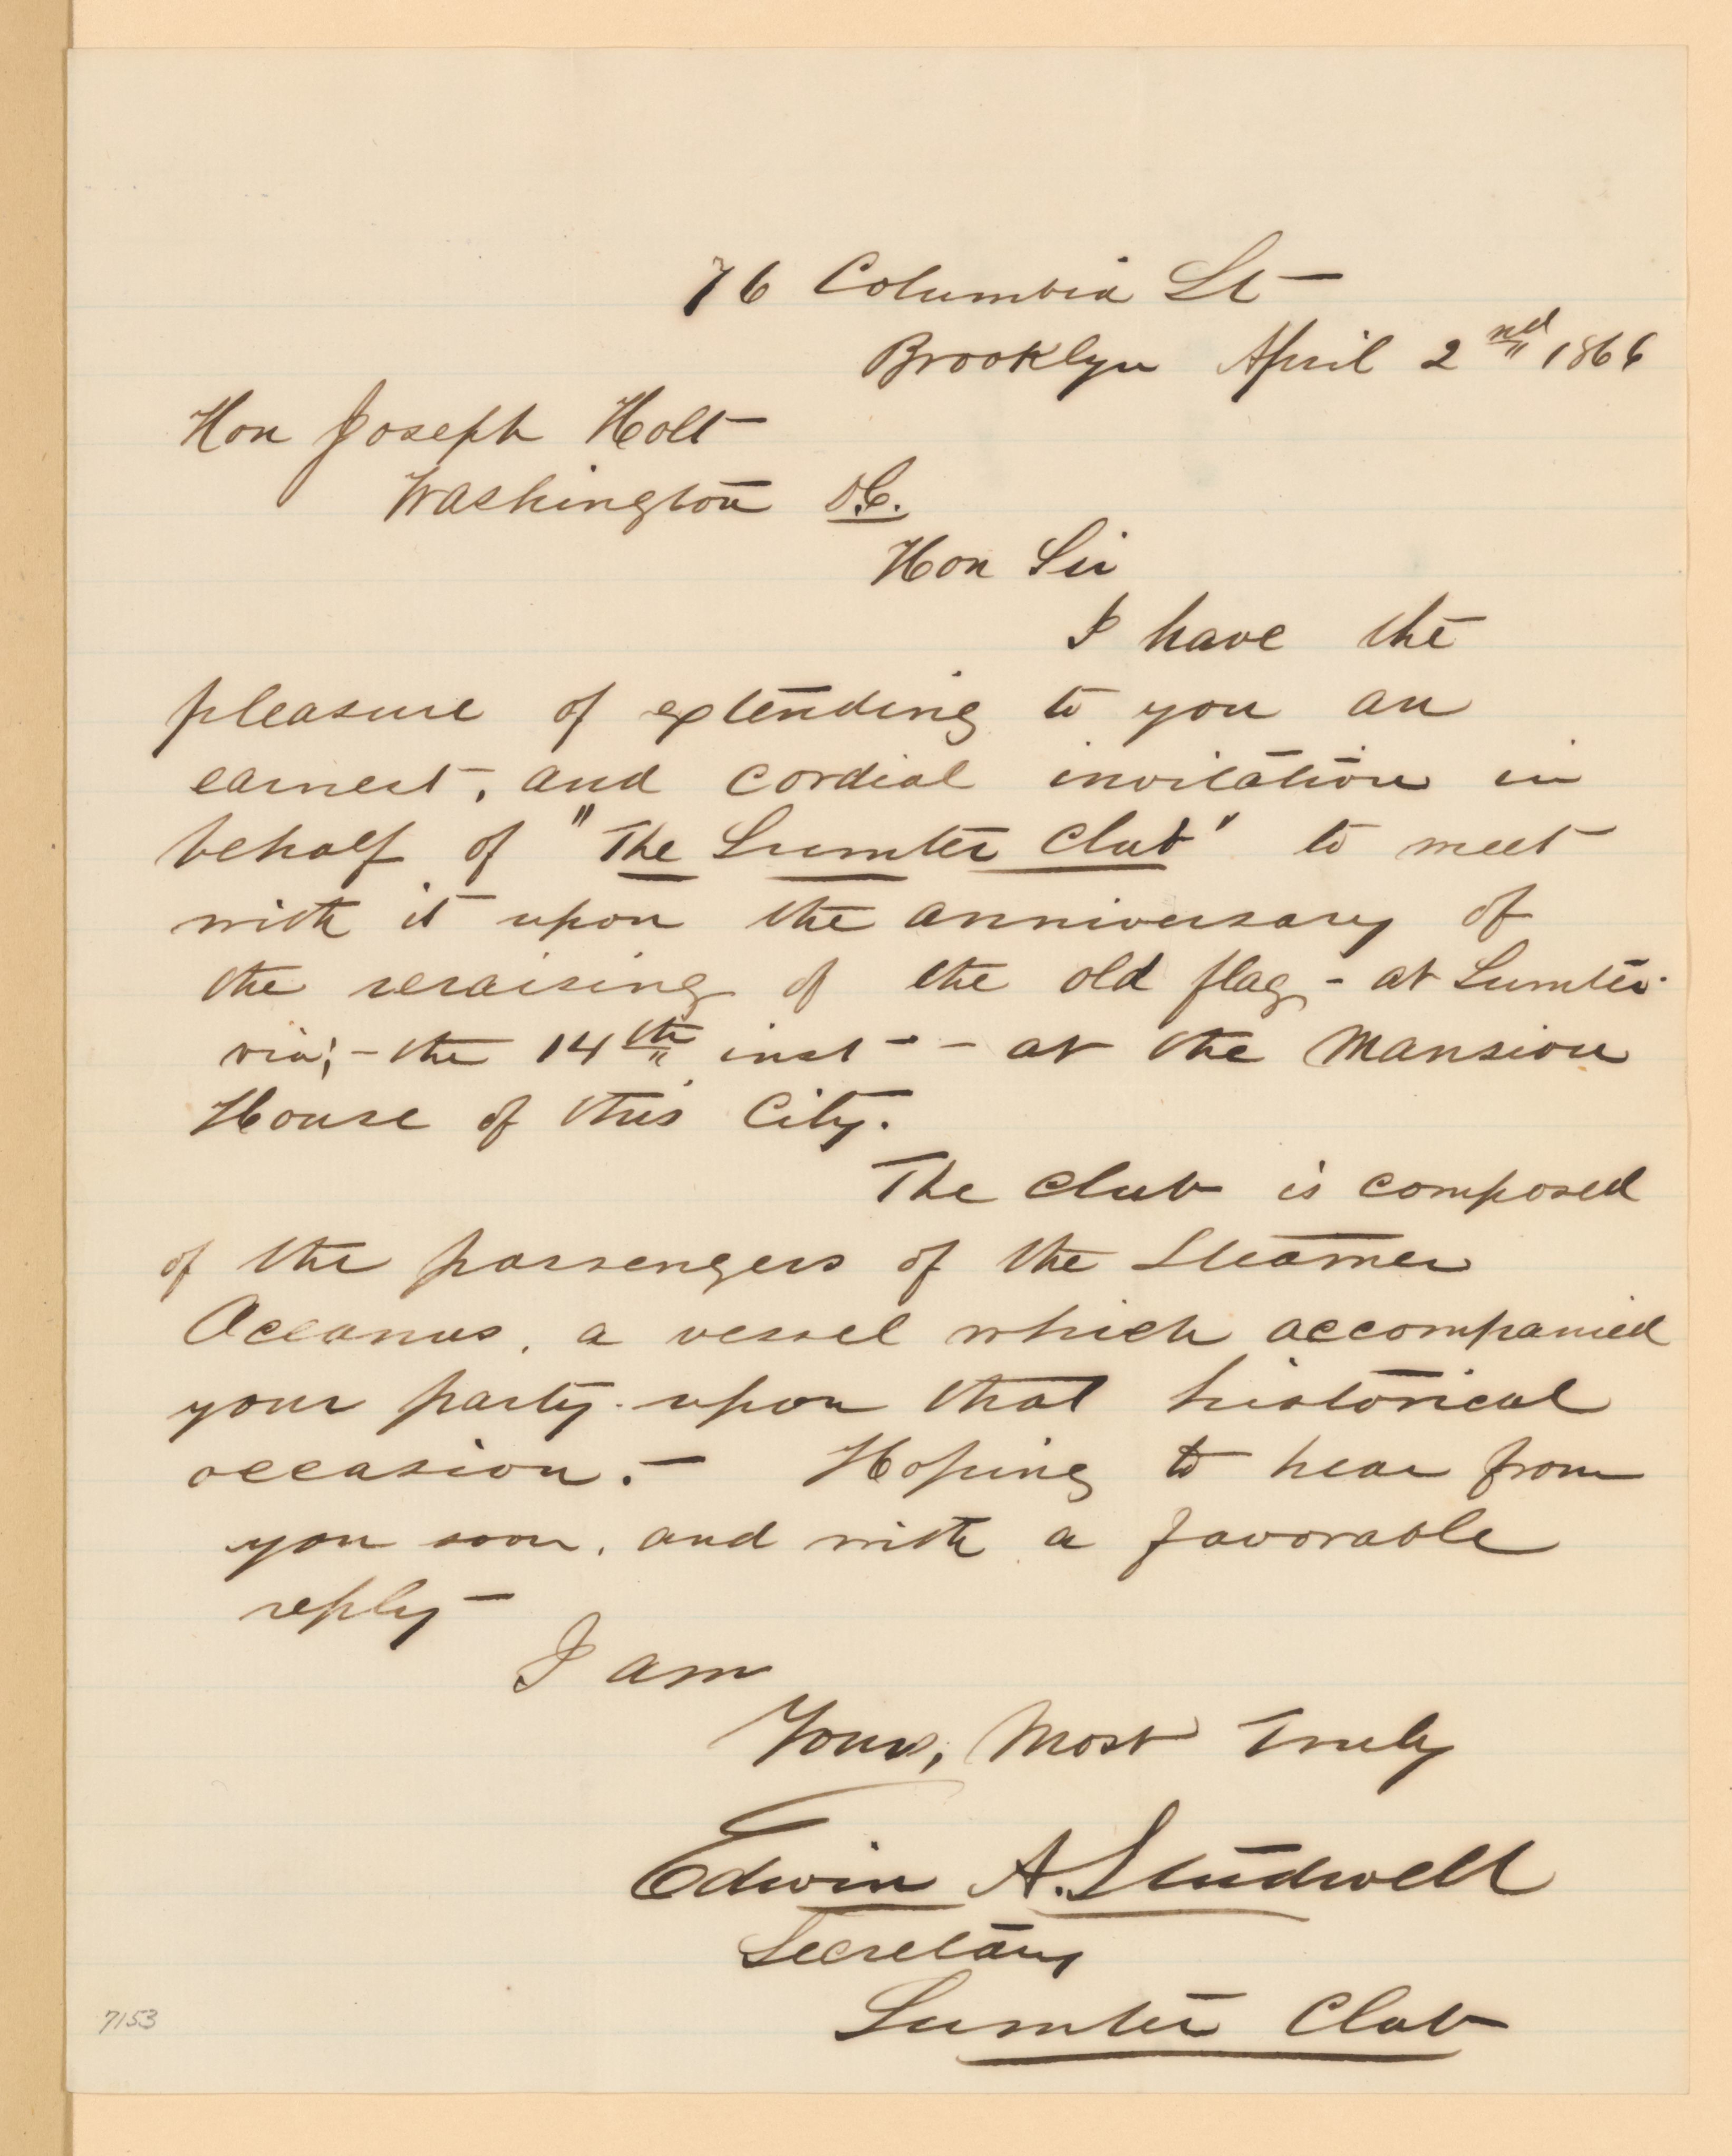 76 Columbia St
Brooklyn April 2nd 1866
Hon Joseph Holt
Washington D.C.
Hon Sir
I have the
pleasure of extending to you an
earnest, and cordial invitation in
behalf of "The Sumter Club" to meet
with it upon the anniversary of
the reraising of the old flag - at Sumter
viz; - the 14th inst - - at the Mansion
House of this City.
The Club is composed
of the passengers of the Steamer
Oceanus, a vessel which accompanied
your party upon that historical
occasion. - Hoping to hear from
you soon, and with a favorable
reply -
I am
Yours, Most Truly
Edwin A. Studwell
Secretary
Sumter Club
7153